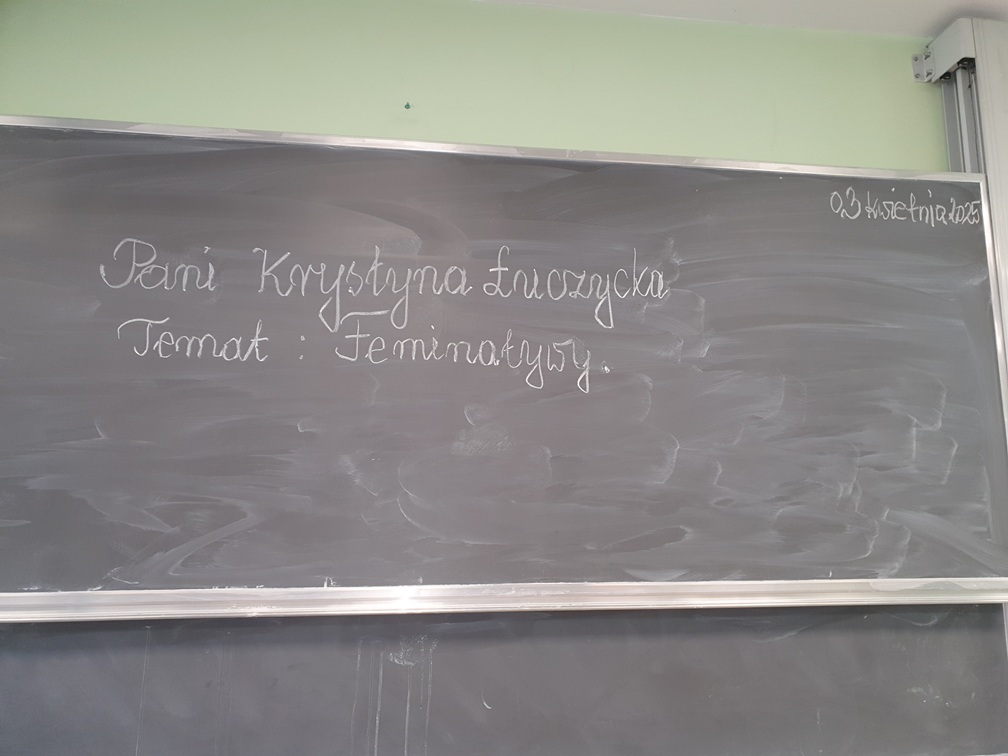 03 kwietnia 2025
Pani Krystyna Łuczycka
Temat : Feminatywy.